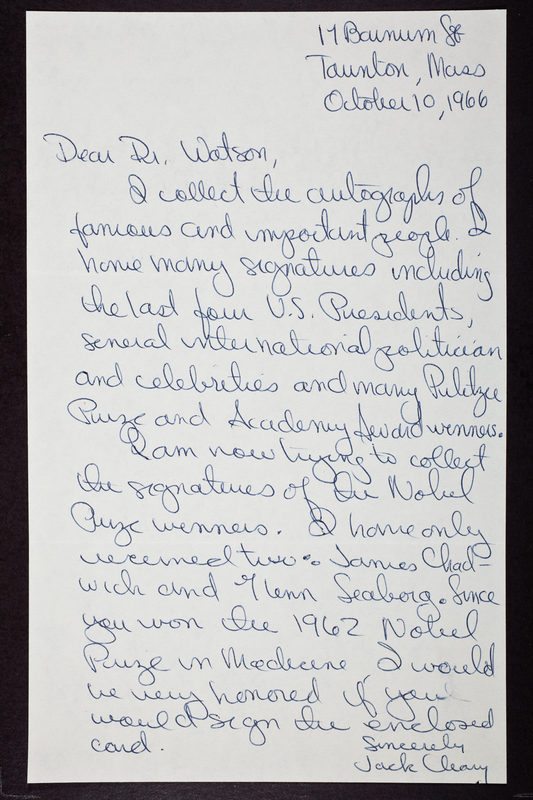 17 Barnum St
Taunton, Mass
October 10, 1966
Dear Dr. Watson,
I collect the autographs of
famous and important people. I
have many signatures including
the last four U.S. Presidents,
several international politician
and celebrities and many Pulitzer
Prize and Academy Award winners.
I am now trying to collect
the signatures of the Nobel
Prize winners. I have only
received two: James Chad-
wick and Glenn Seaborg. Since
you won the 1962 Nobel
Prize in Medicine, I would
be very honored if you
would sign the enclosed
card.
Sincerely
Jack Cleary